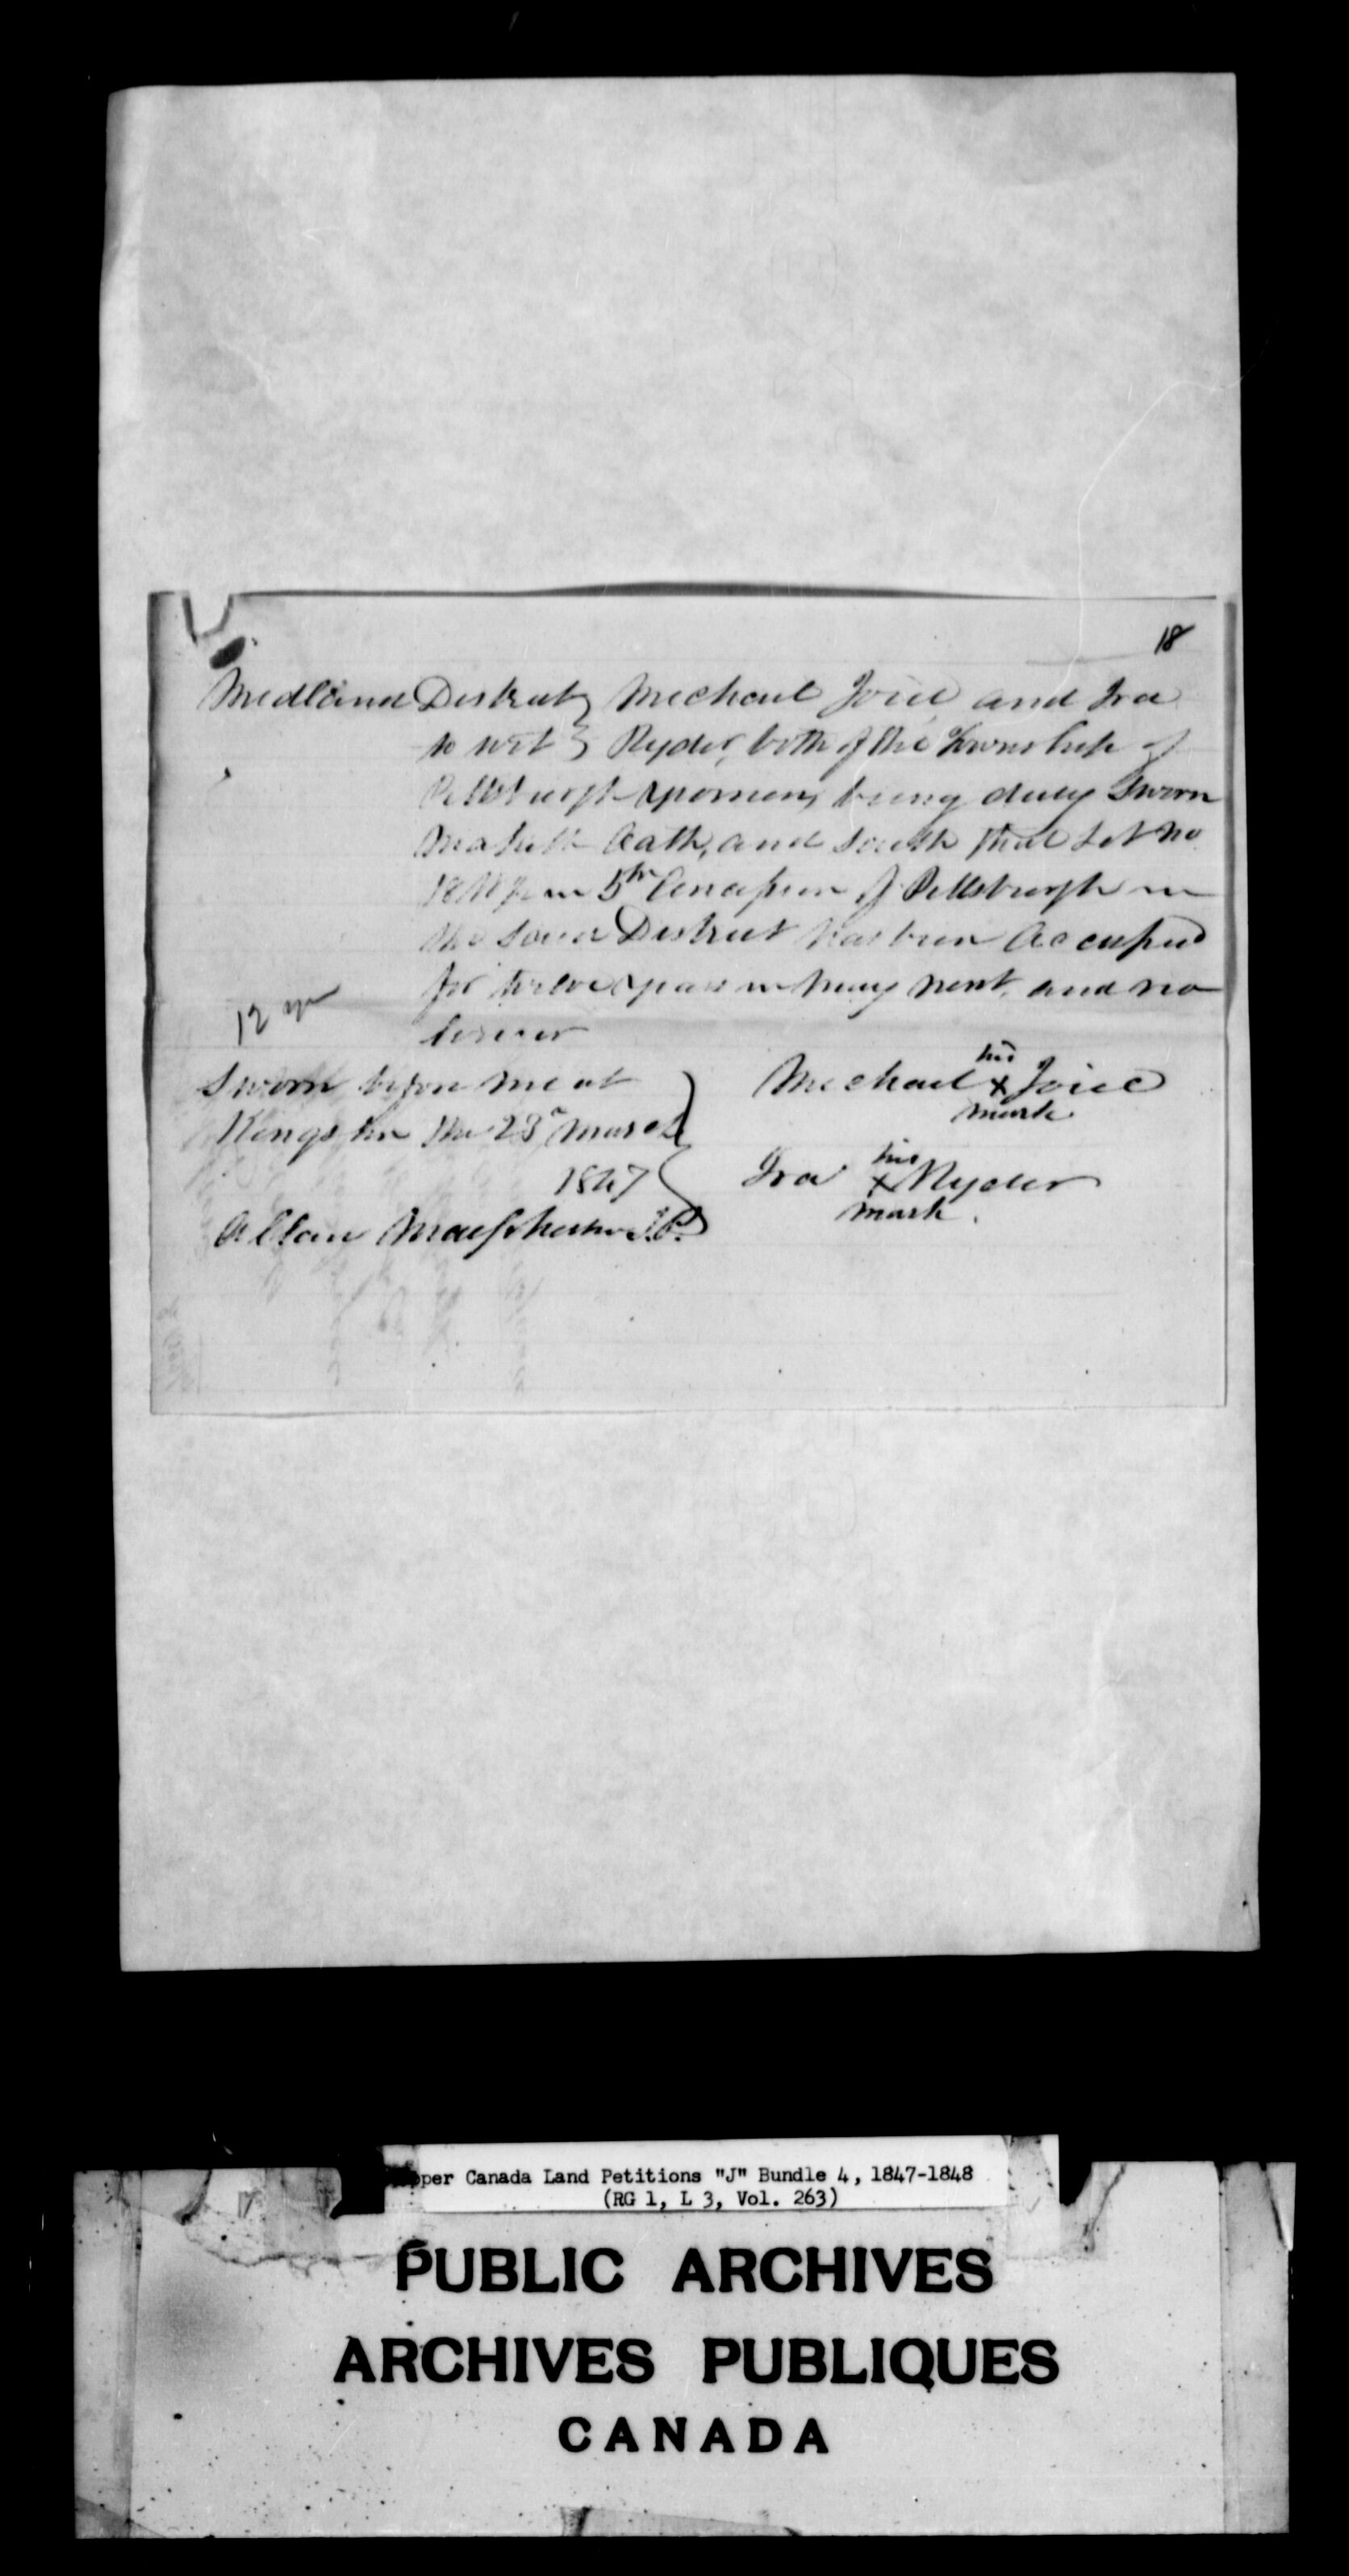 18
Midland District } Michael Joice and Ira
to wit } Ryder, both of the Township of
Pittsburgh yeomen, being duly Sworn
Maketh Oath, and saith that Lot No
18 in 5th Concession of Pittsburgh in
the said District has been Occupied
for twelve years in May next, and no
longer
12 yr
Sworn before me at
Kingston the 23d March
1847
Allan Macpherson J.P.
Michael his x mark Joice
Ira his x mark Ryder
pper Canada Land Petitions "J" Bundle 4, 1847-1848
(RG 1, L 3, Vol. 263)
PUBLIC ARCHIVES
ARCHIVES PUBLIQUES
CANADA